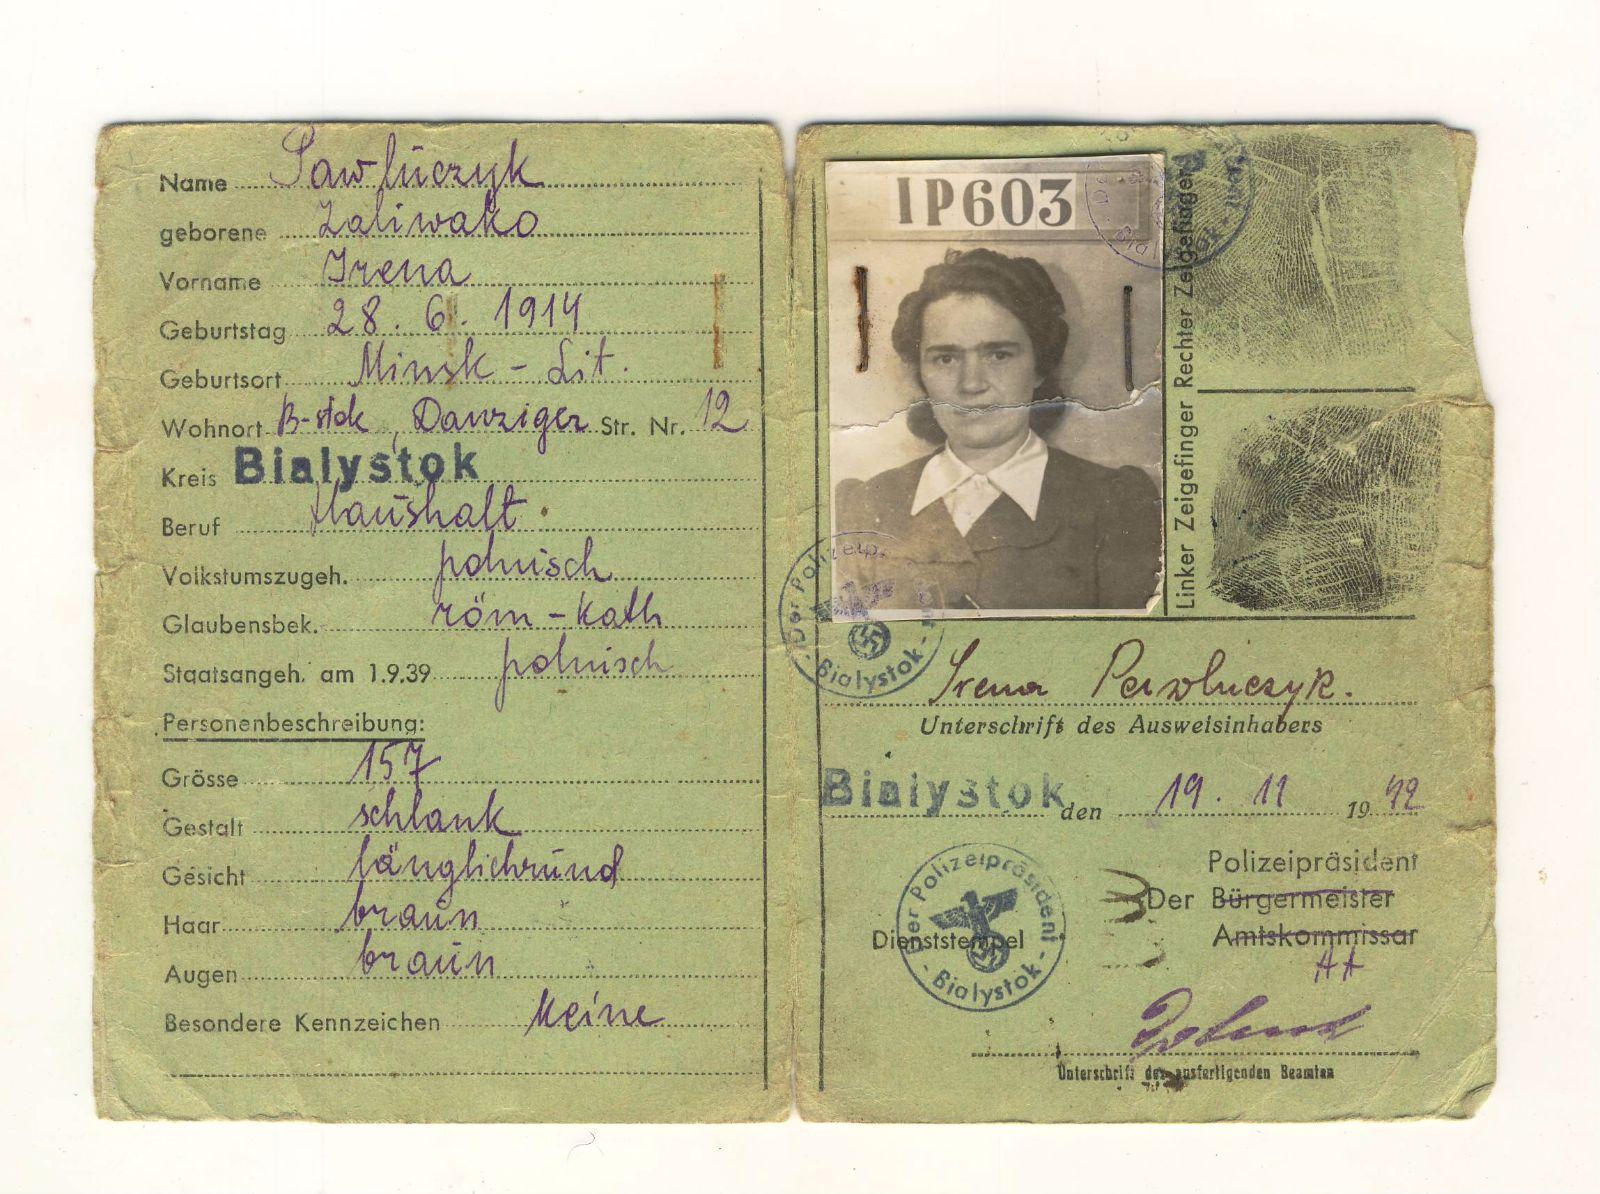 Name Pawluczyk
geborene Zaliwako
Vorname Irena
Geburtstag 28. 6. 1914
Geburtsort Minsk - Lit.
Wohnort B-stok, Danziger Str. Nr. 12
Kreis Bialystok
Beruf Haushalt
Volkstumszugeh. polnisch
Glaubensbek. röm-kath
Staatsangeh. am 1.9.39 polnisch
Personenbeschreibung:
Grösse 157
Gestalt schlank
Gesicht länglichrund
Haar braun
Augen braun
Besondere Kennzeichen keine
IP603
Linker Zeigefinger Rechter Zeigefinger
Der Polizeip
Bialystok
Irena Pawluczyk.
Unterschrift des Ausweisinhabers
Bialystok den 19. 11 1942
Polizeipräsident
Der Bürgermeister
Amtskommissar
Dienststempel
Der Polizeipräsident
Bialystok
Unterschrift des ausfertigenden Beamten